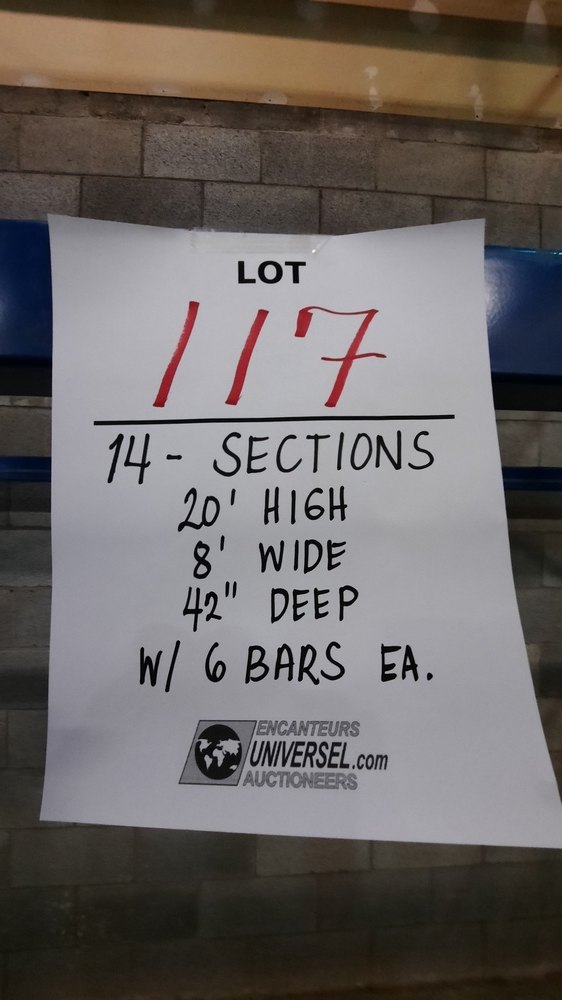 LOT
117
14 - SECTIONS
20' HIGH
8' WIDE
42" DEEP
W/ 6 BARS EA.
ENCANTEURS
UNIVERSEL.com
AUCTIONEERS